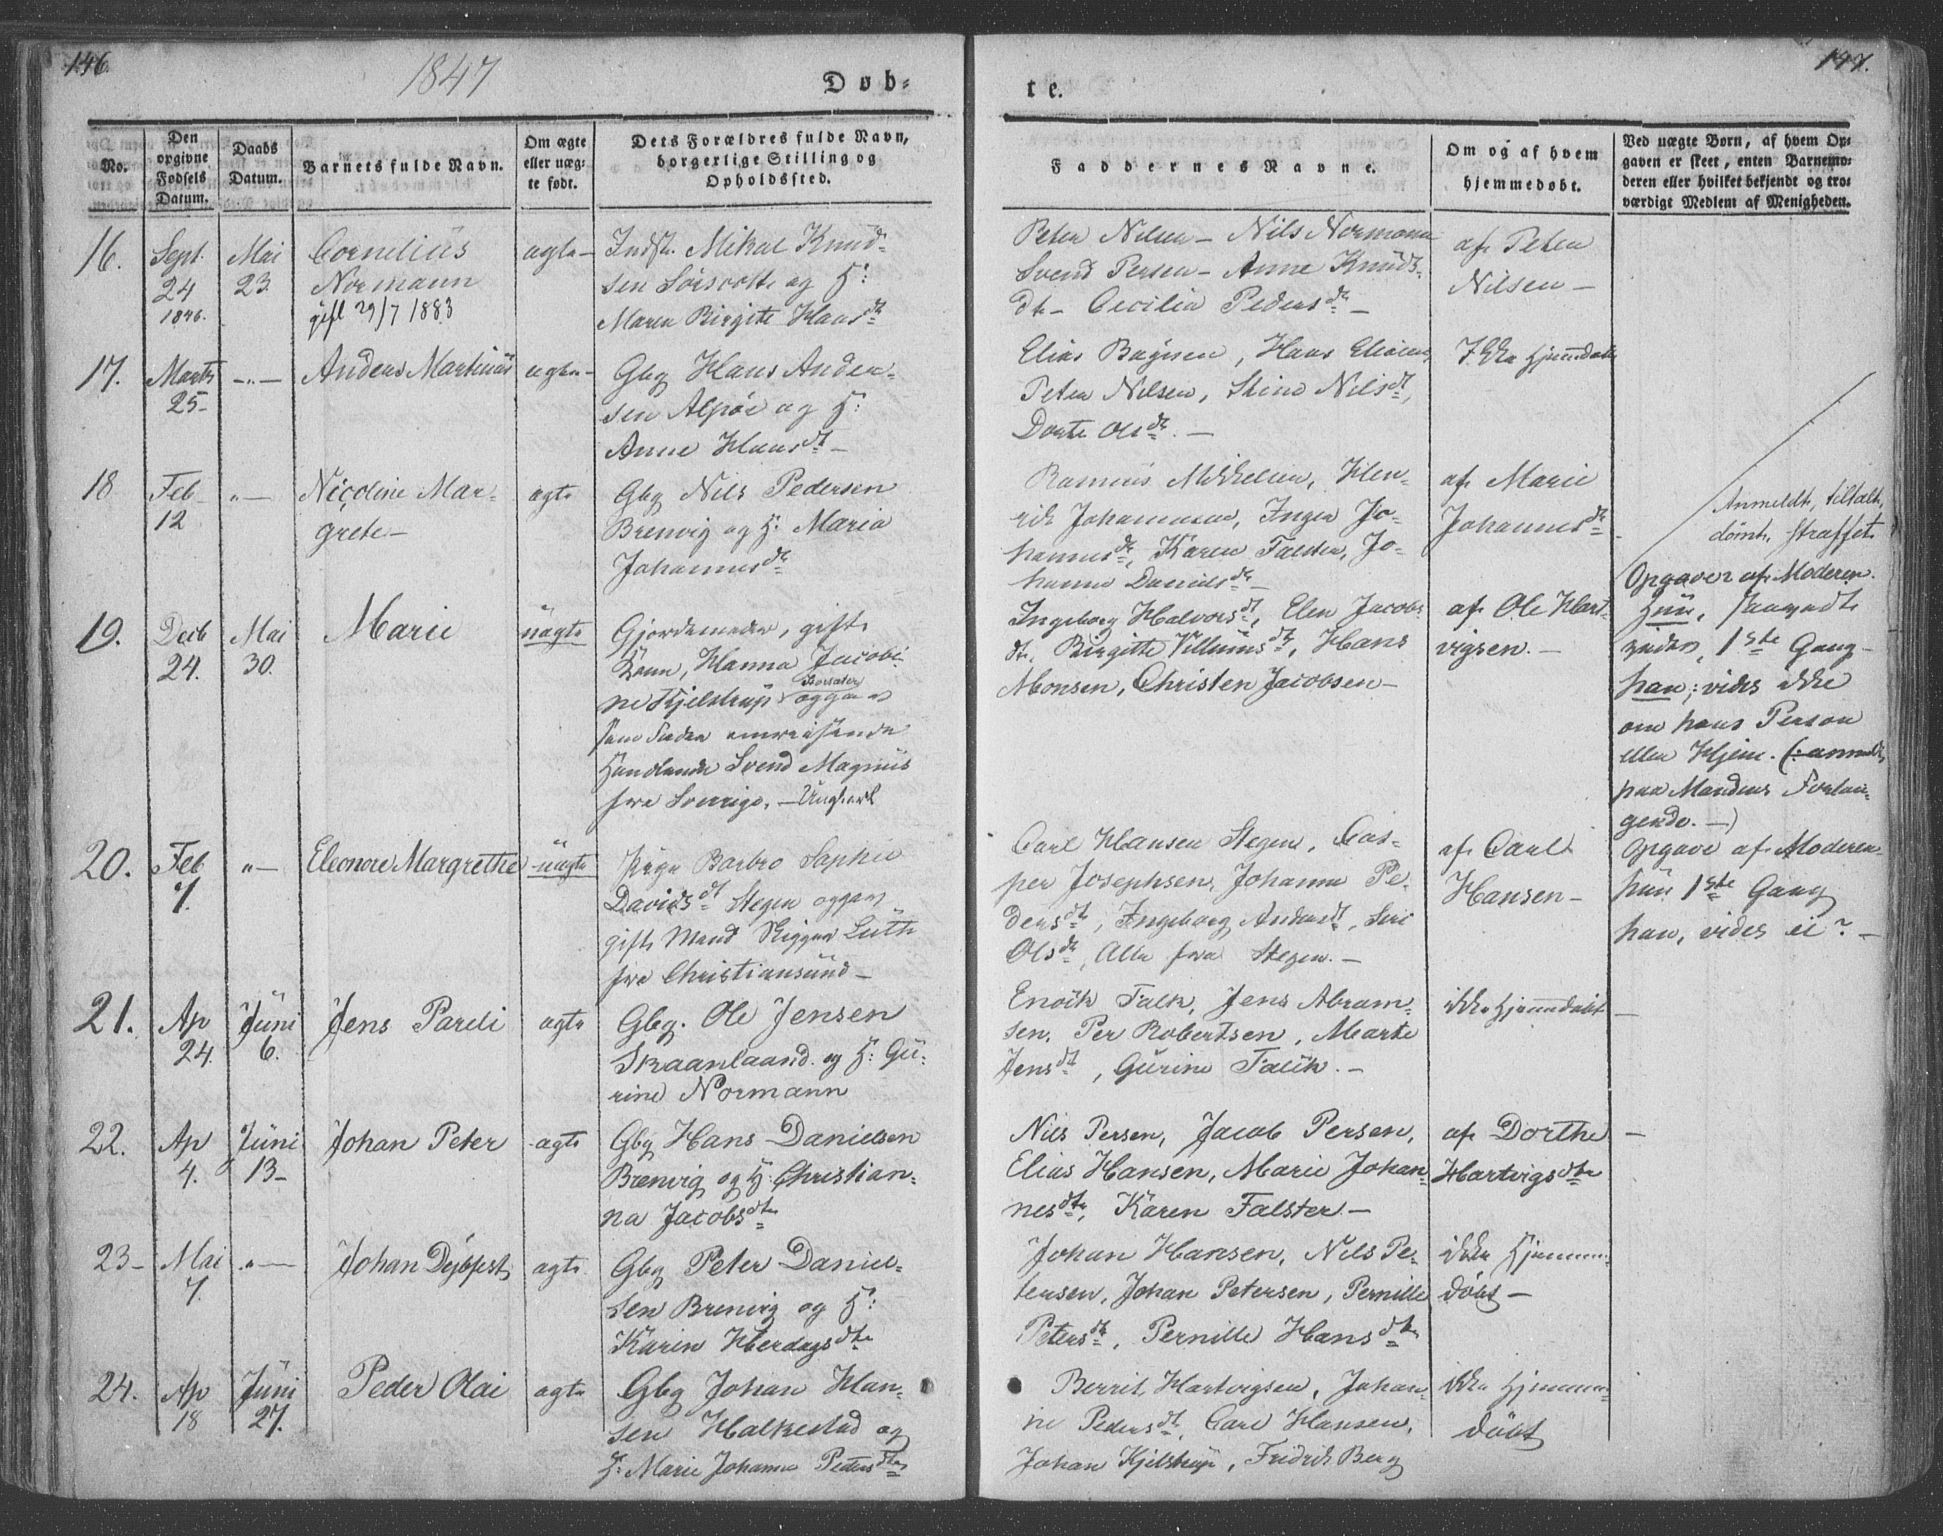 146.
1847
Døb-
te.
147.
No.
Den
opgivne
Fødsels
Datum.
Daabs
Datum.
Barnets fulde Navn.
Om ægte
eller uæg-
te født.
Dets Forældres fulde Navn,
borgerlige Stilling og
Opholdssted.
Faddernes Navne.
Om og af hvem
hjemmedøbt.
Ved uægte Børn, af hvem Op-
gaven er skeet, enten Barnemo-
deren eller hvilket bekjendt og tro-
værdigt Medlem af Menigheden.
16.
Sept.
24
1846.
Mai
23.
Cornelius
Normann
29/7 1883
ægte
Indst. Mikal Knud-
sen og H:
Maren Birgite Hansdt
Peter Nilsen - Nils Normann
Svend Persen - Anne Knuds-
dt - Cecilia Pedersdt -
af Peter
Nilsen -
17.
Marts
25-
-"-
Anders Martinus
ægte
Gbg Hans Ander-
sen Alpøe og H:
Anne Hansdt -
Elias Hans
Peter Nilsen, Stine Nilsdt,
Dorte Olsdt. -
Ikke Hjemmdøbt
18
Feb
12
"-
Nicoline Mar-
grete -
ægte
Gbg Nils Pedersen
Brenvig og H. Maria
Johannesdt
Rasmus Mikkelsen, Hen-
rik Johannesen, Inger Jo-
hannesdt, Karen Falster, Jo-
hanna Danielsdt -
af Marie
Johannesdt
Anmeldt, tiltalt,
dømt, straffet
19.
Decb
24.
Mai
30.
Marie
uægte
Gjordemoder, gift
Kone, Hanna Jacobi-
ne Kjelstrup opgav
som Fader omreisende
Handlende Svend Magnus
fra Sverige. - Ungkarl
Ingeborg Halvorsdt, Elen Jacobs
dt, Birgitte Villumsdt, Hans
Monsen, Christen Jacobsen -
af Ole Hart-
vigsen. -
Opgaver af Moderen.
Hun,
1ste Gang -
han; vides ikke
om hans Person
eller Hjem. (: anmeldt
paa Mandens Forlan-
gende. -)
20.
Feb
7.
"-
Eleonore Margrethe
uægte
Pige Barbro Sophie
Davidsdt Stegen opgav
gift Mand Skipper Lüth
fra Christiansund -
Carl Hansen Stegen, Cas-
per Josephsen, Johanna Pe-
dersdt, Ingeborg Andersdt, Siri
Olsdt, Alle fra Stegen. -
af Carl
Hansen -
Opgave af Moderen
hun 1ste Gang
han, vides ei? -
21.
Ap
24.
Juni
6.
Jens Pareli
ægte
Gbg. Ole Jensen
Skaanlaand. og H: Gu-
rine Normann
Enoch Falk, Jens Abram-
sen, Per Robertsen, Marte
Jensdt, Gurine Falck. -
ikke Hjemmdøbt -
22.
Ap
4.
Juni
13-
Johan Peter
ægte
Gbg Hans Danielsen
Brenvig og H: Christian-
na Jacobsdtr
Nils Persen, Jacob Persen,
Elias Hansen, Marie Johan-
nesdtr, Karen Falster -
af Dorthe
Hartvigsdtr
-
23-
Mai
7.
"-
Johan
ægte
Gbg Peter Daniel-
sen Brenvig og H:
Karin Herdagsdtr
Johan Hansen, Nils Pe-
tersen, Johan Petersen, Pernille
Petersdt, Pernille Hansdtr
ikke Hjemme-
døbt -
24.
Ap
18
Juni
27.
Peder Olai
ægte
Gbg Johan Han-
sen Halkestad og
H: Marie Johanna Pedersdtr
Berrit Hartvigsen, Johan-
ne Pedersdt, Carl Hansen,
Johan Kjelstrup, Fridrik Berg
ikke Hjemme-
døbt